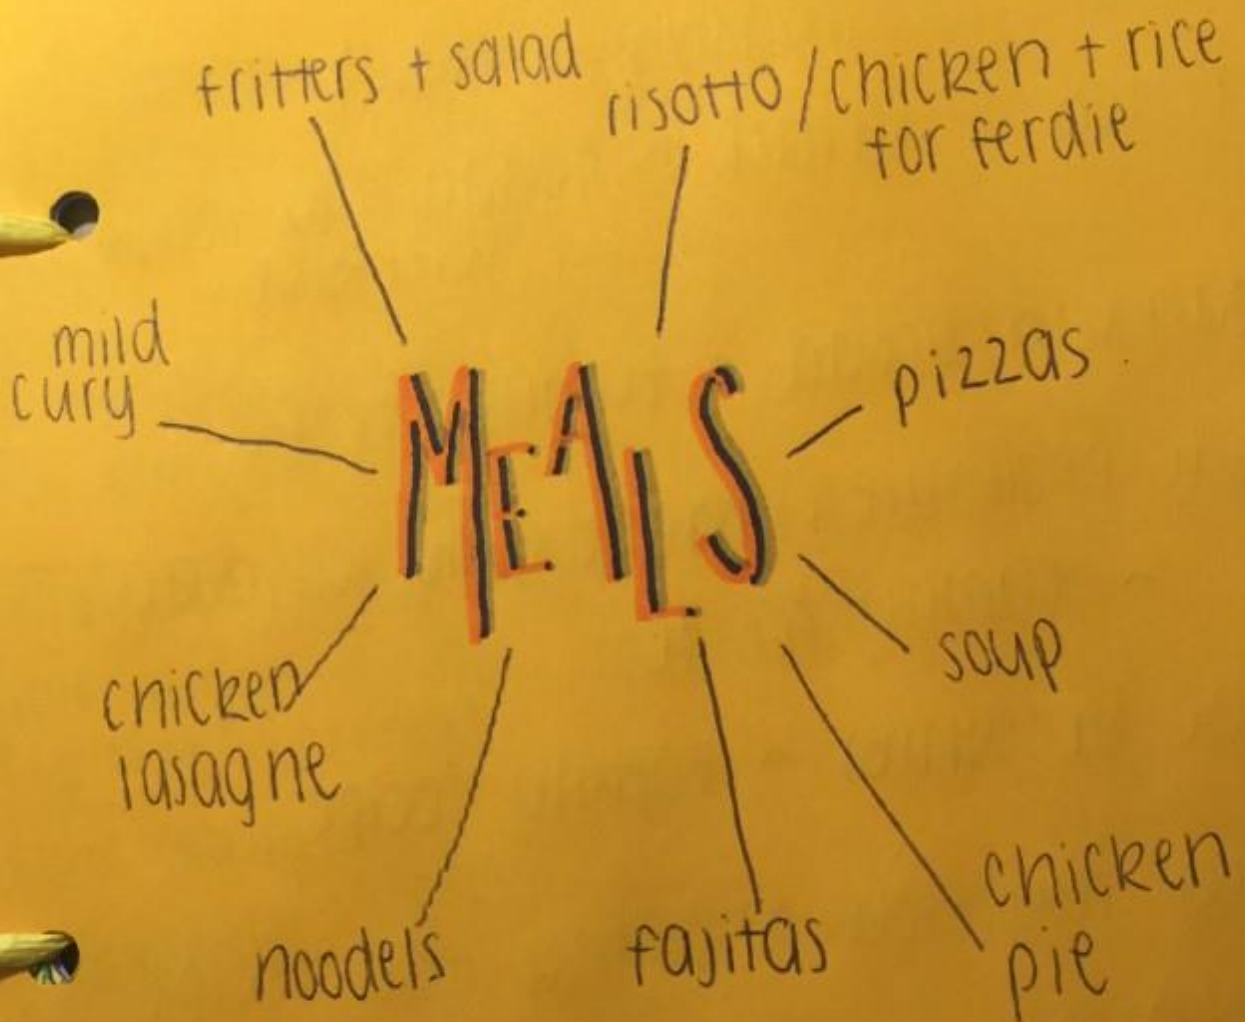 fritters + salad
risotto / chicken + rice
for ferdie
mild
cury
MEALS
pizzas
soup
chicken
lasagne
noodels
fajitas
chicken
pie